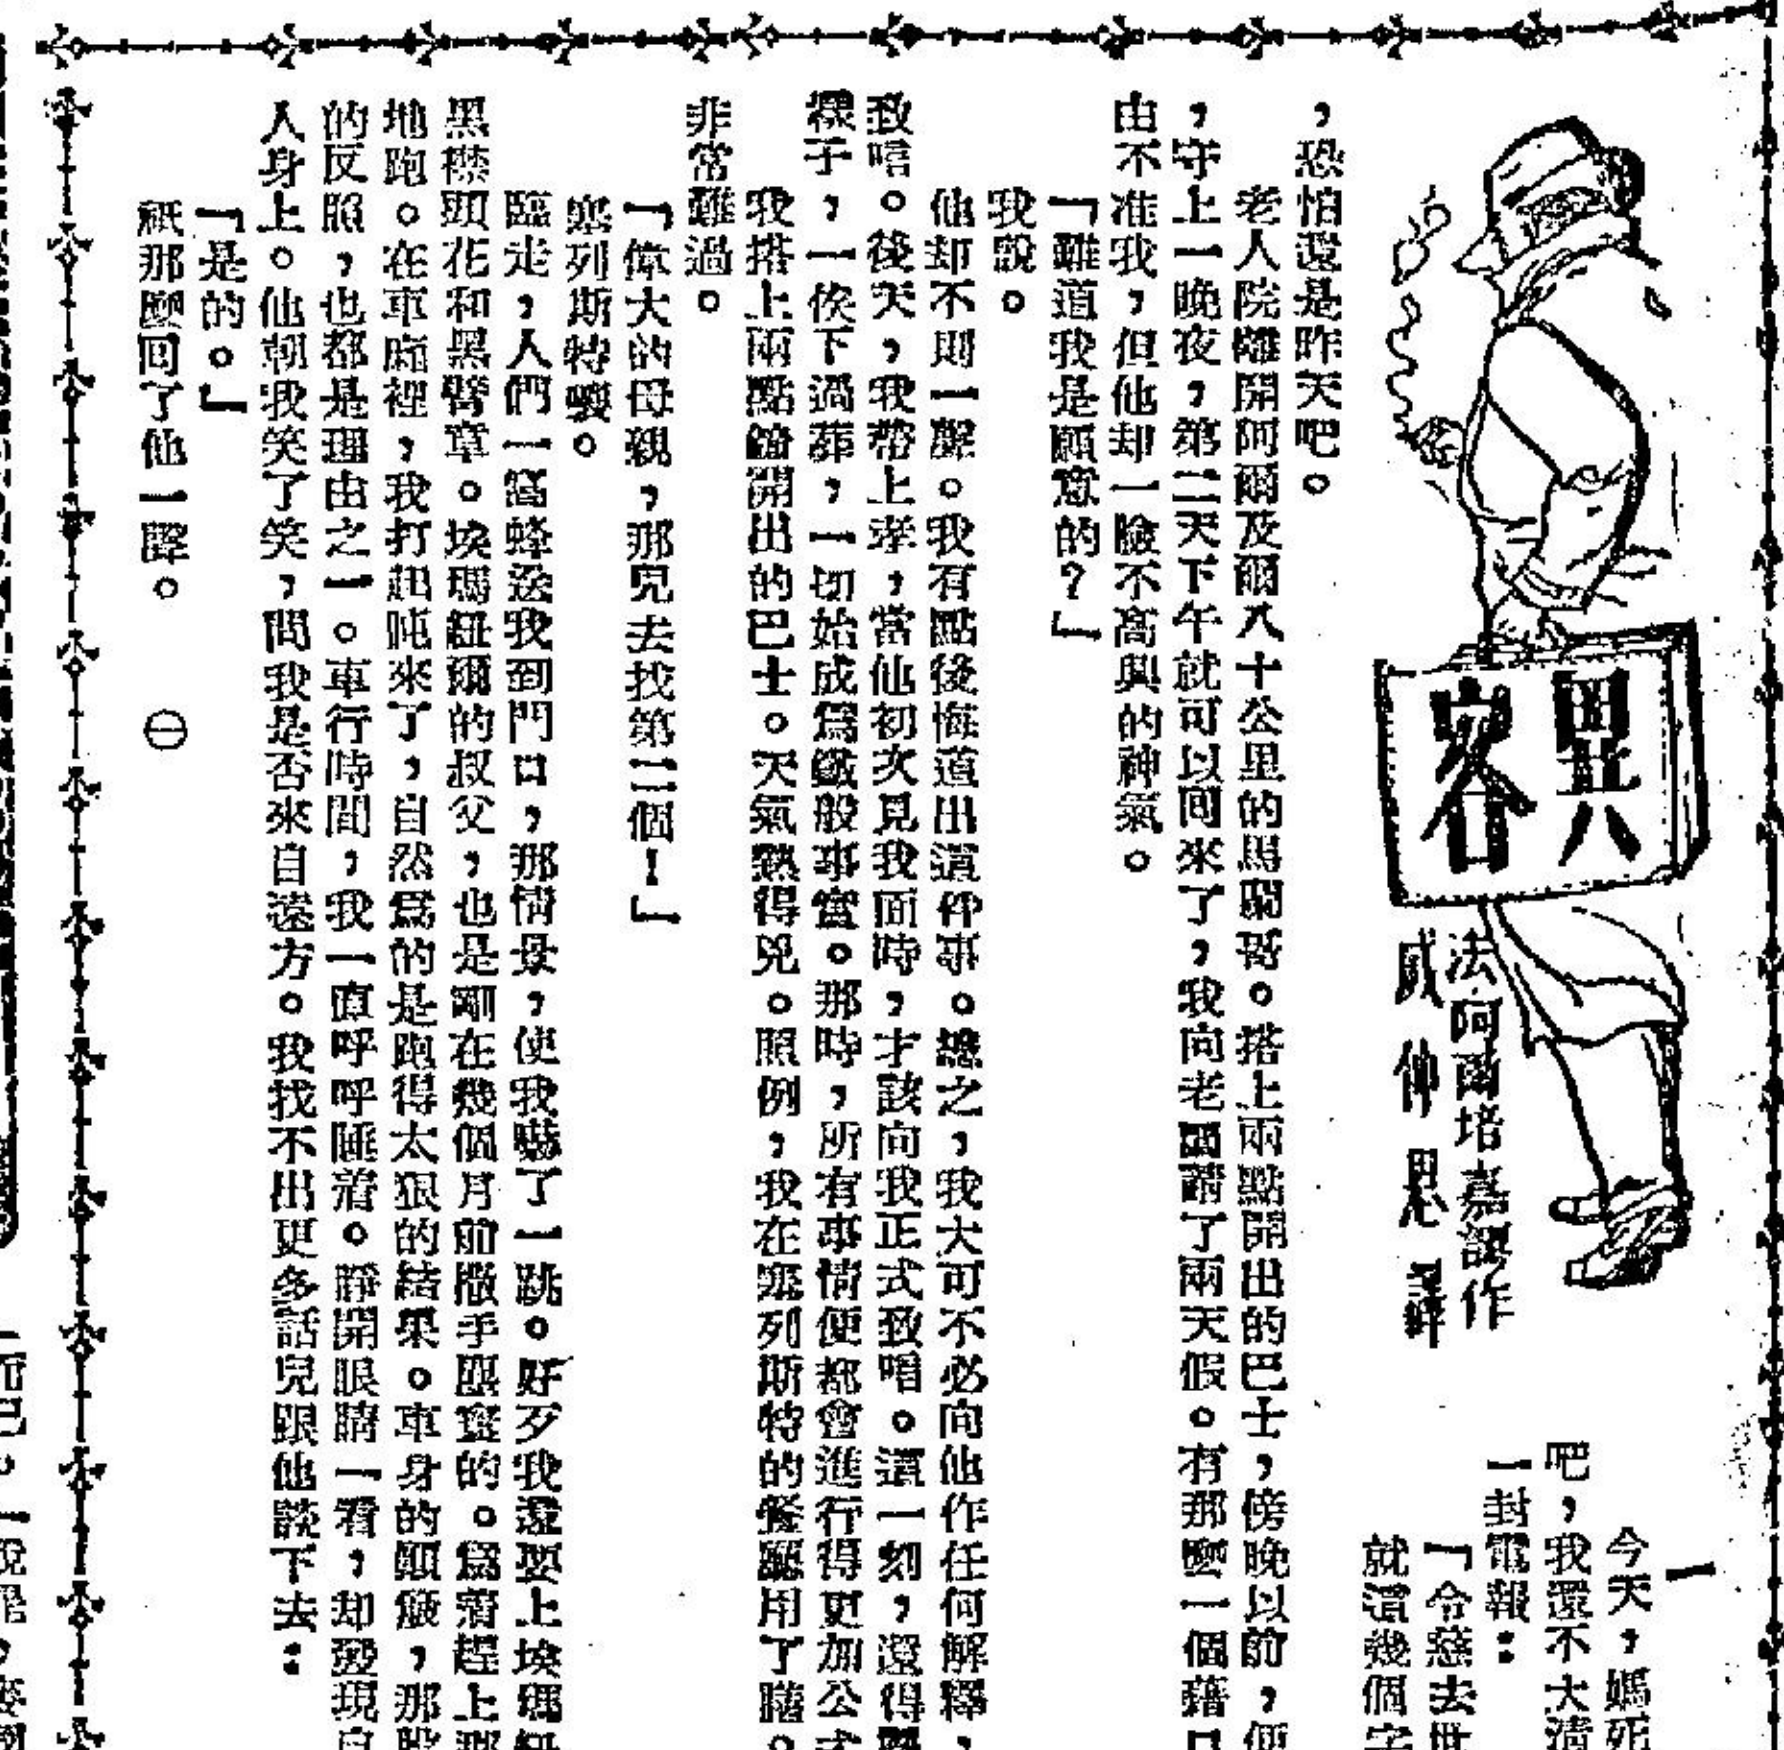 異客
法·阿爾培嘉謬作
威仲思譯
一
今天，媽死
吧，我還不大清
一封電報：
「令慈去世
就這幾個字
，恐怕還是昨天吧。
老人院離開阿爾及爾八十公里的馬蘭哥。搭上兩點開出的巴士，傍晚以前，便
，守上一晚夜，第二天下午就可以回來了，我向老闆請了兩天假。有那麼一個藉口
由不准我，但他却一臉不高興的神氣。
「難道我是願意的？」
我說。
他却不則一聲。我有點後悔道出這件事。總之，我大可不必向他作任何解釋，
致唁。後天，我帶上孝，當他初次見我面時，才該向我正式致唁。這一刻，還得
樣子，一俟下過葬，一切始成爲鐵般事實。那時，所有事情便都會進行得更加公式
我搭上兩點鐘開出的巴士。天氣熱得兇。照例，我在塞列斯特的餐廳用了膳。
非常難過。
「偉大的母親，那兒去找第二個！」
塞列斯特嘆。
臨走，人們一窩蜂送我到門口，那情景，使我嚇了一跳。好歹我還要上埃瑪紐
黑襟頭花和黑臂章。埃瑪紐爾的叔父，也是剛在幾個月前撒手塵寰的。爲着趕上那
地跑。在車廂裡，我打起盹來了，自然爲的是跑得太狠的結果。車身的顛簸，那股
的反照，也都是理由之一。車行時間，我一直呼呼睡着。睜開眼睛一看，却發現自
人身上。他朝我笑了笑，問我是否來自遠方。我找不出更多話兒跟他談下去：
「是的。」
祇那麼回了他一聲。　㊀